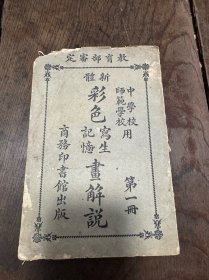 教育部審定
中學校
師範學校
用
新體
彩色
寫生
記憶
畫解說
第一冊
商務印書館出版